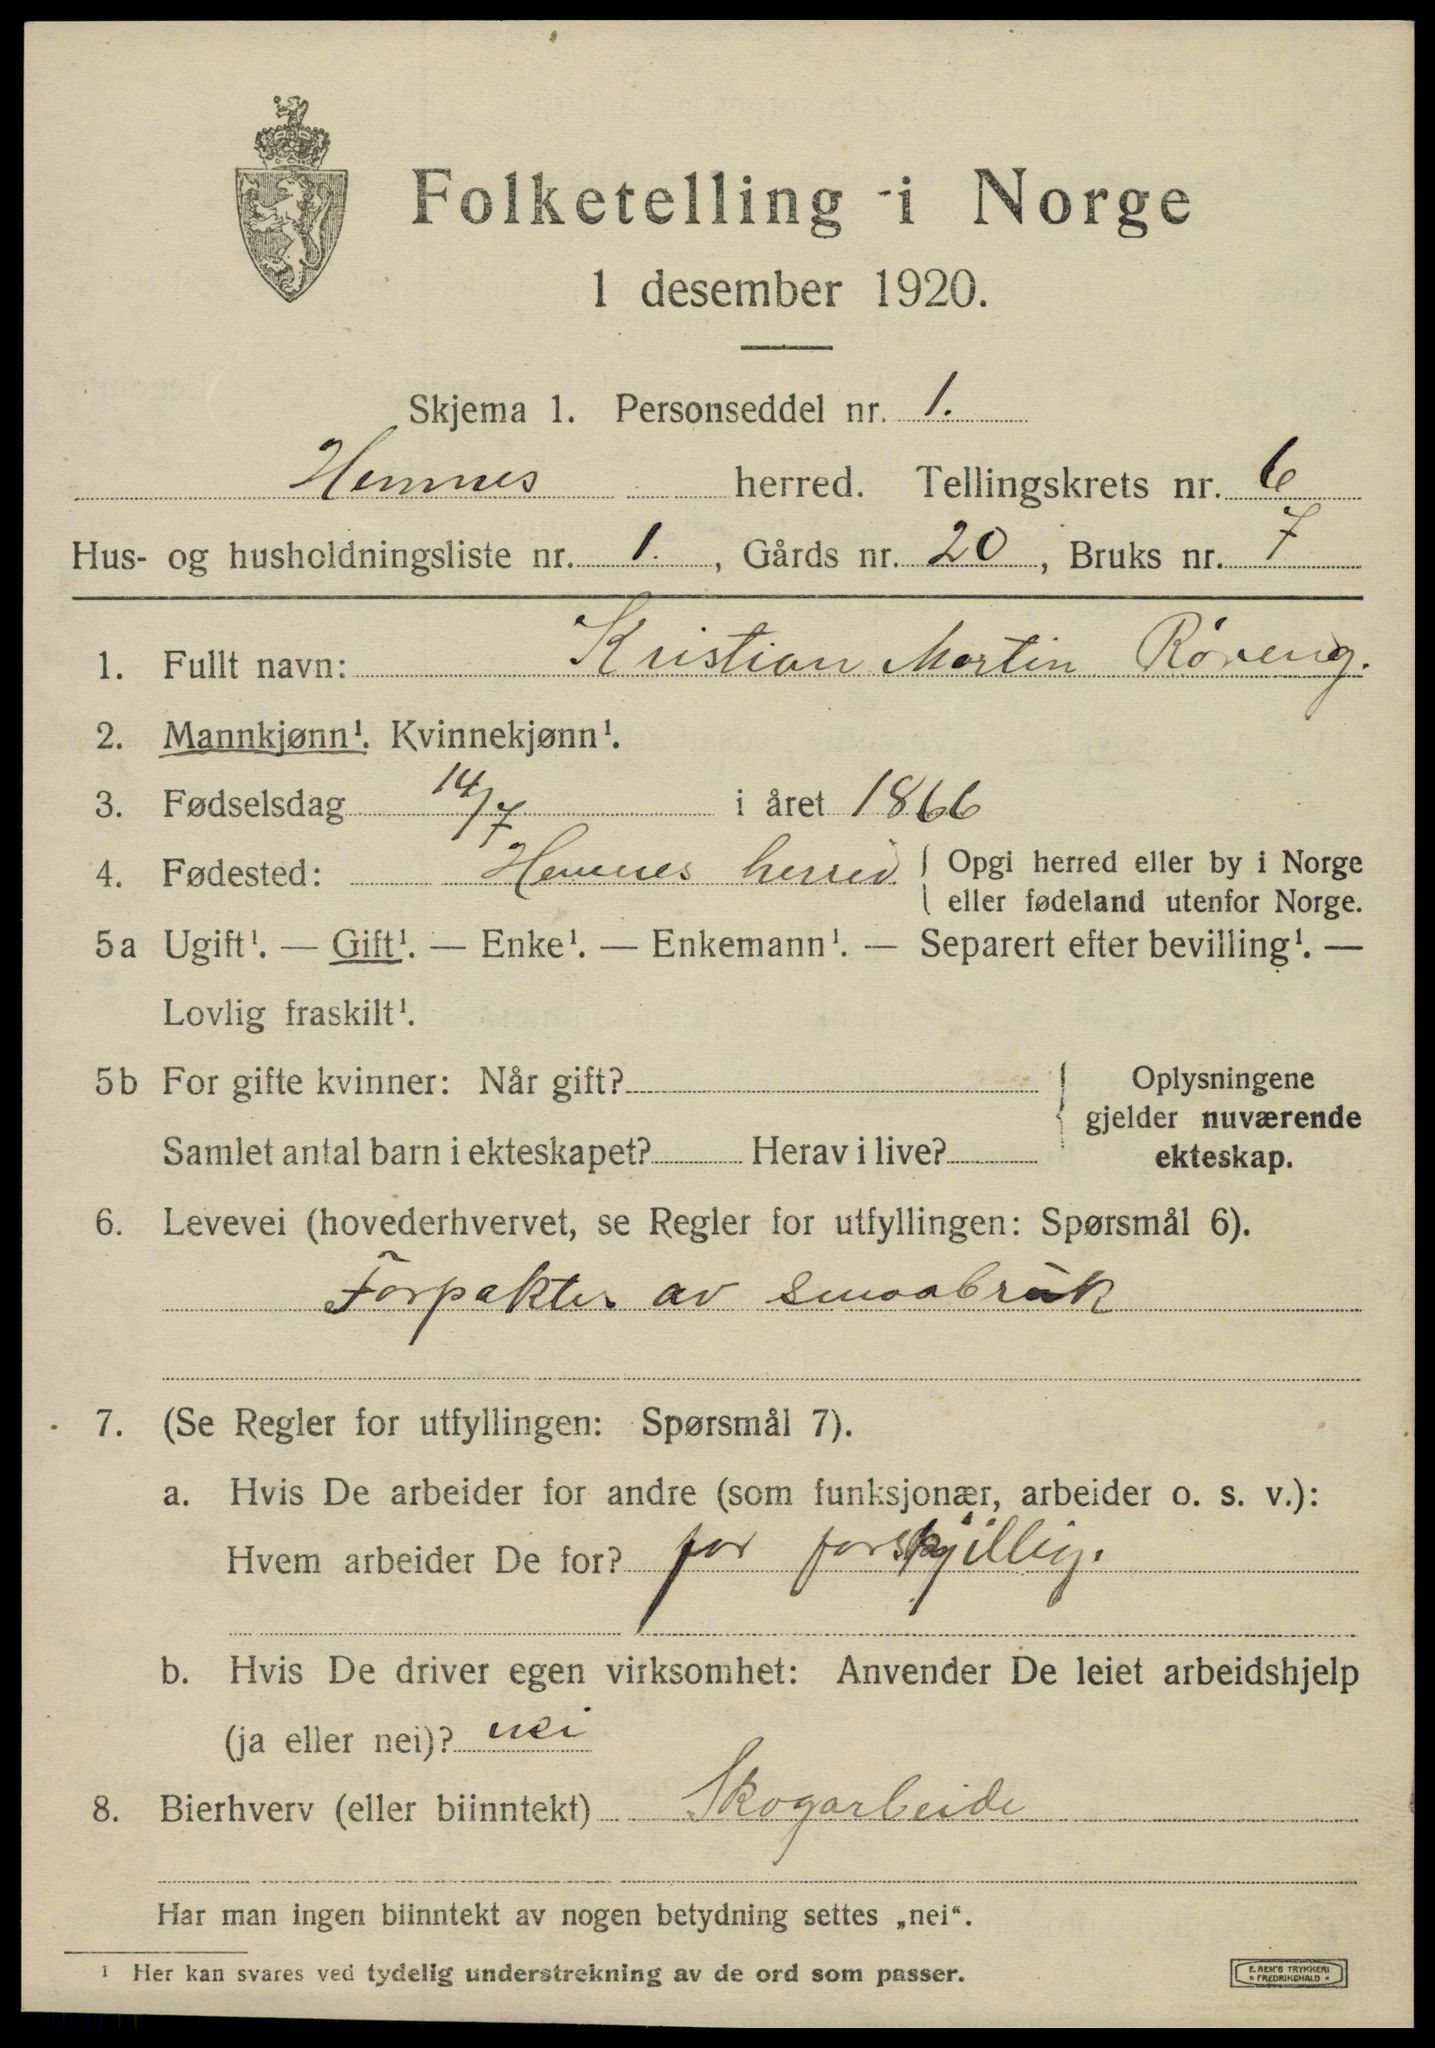 Folketelling i Norge
1 desember 1920.
Skjema 1. Personseddel nr. 1.
Hemnes herred. Tellingskrets nr. 6
Hus- og husholdningsliste nr. 1. , Gårds nr. 20 , Bruks nr. 7
1. Fullt navn: Kristian Martin Röreng.
2. Mannkjønn¹. Kvinnekjønn¹.
3. Fødselsdag 14/7 i året 1866
4. Fødested: Hemnes herred { Opgi herred eller by i Norge
eller fødeland utenfor Norge.
5a Ugift¹. — Gift¹. — Enke¹. — Enkemann¹. — Separert efter bevilling¹. —
Lovlig fraskilt¹.
5b For gifte kvinner: Når gift? { Oplysningene
gjelder nuværende
Samlet antal barn i ekteskapet? Herav i live? ekteskap.
6. Levevei (hovederhvervet, se Regler for utfyllingen: Spørsmål 6).
Forpakter av smaabruk
7. (Se Regler for utfyllingen: Spørsmål 7).
a. Hvis De arbeider for andre (som funksjonær, arbeider o. s. v.):
Hvem arbeider De for? for forskjillig.
b. Hvis De driver egen virksomhet: Anvender De leiet arbeidshjelp
(ja eller nei)? nei
8. Bierhverv (eller biinntekt) Skogarbeide
Har man ingen biinntekt av nogen betydning settes „nei“.
¹ Her kan svares ved tydelig understrekning av de ord som passer.
E. SEM'S TRYKKERI
• FREDRIKSHALD •